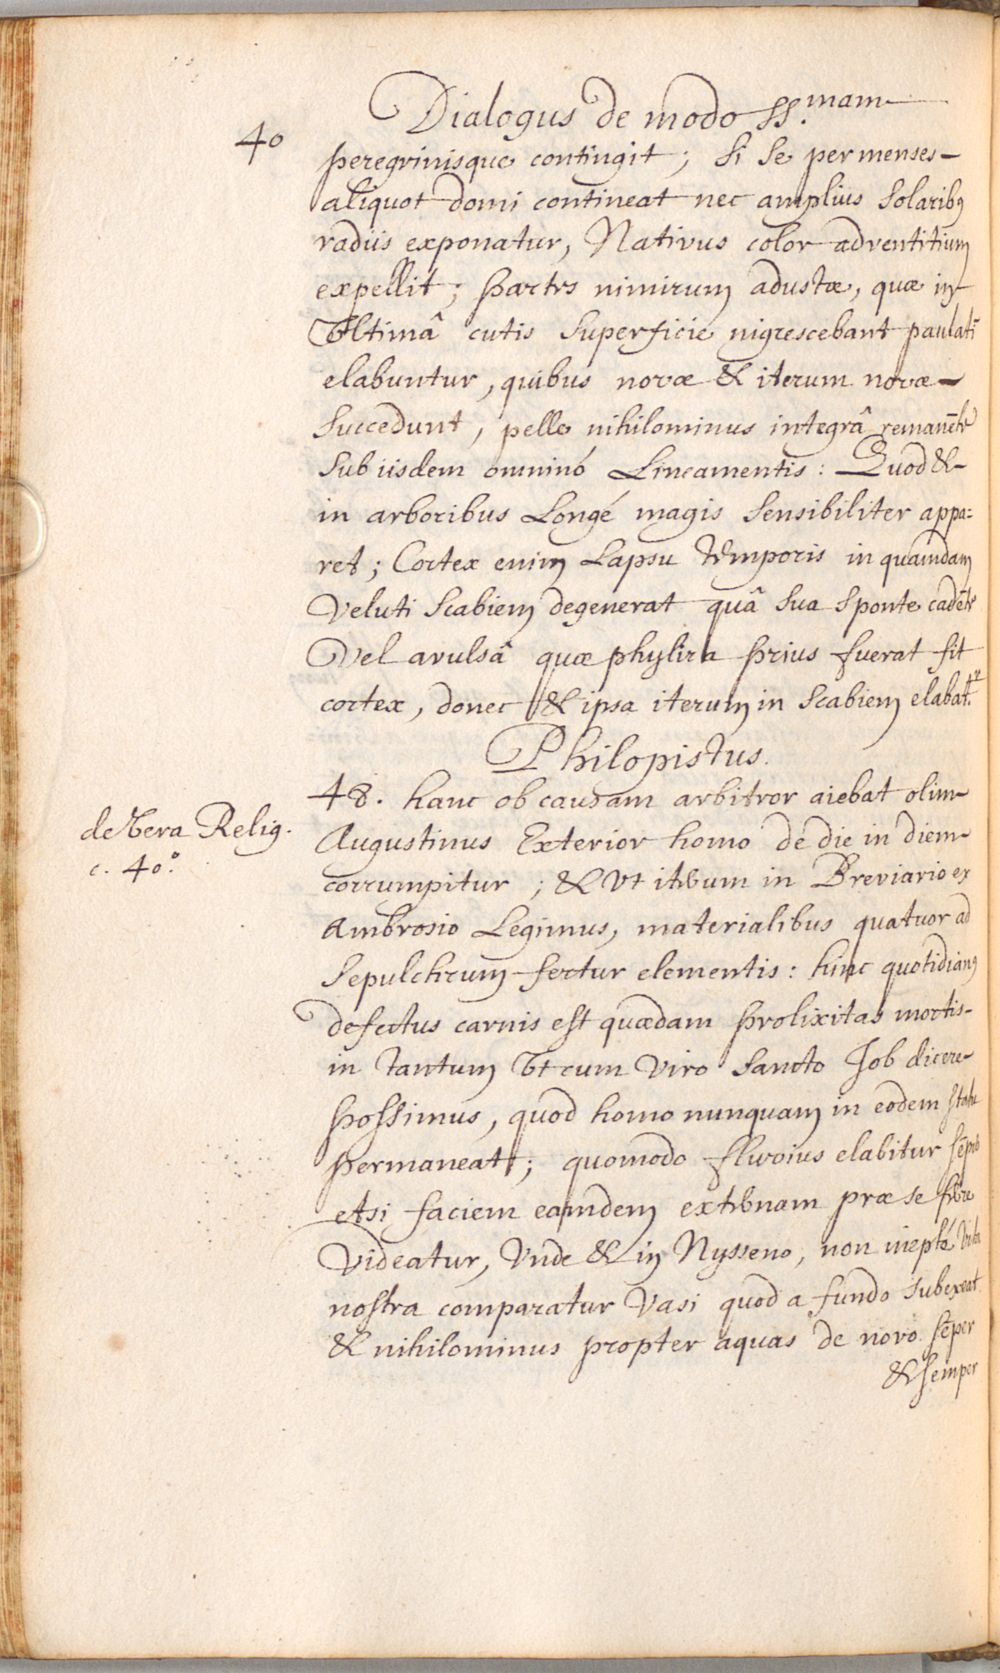 40
Dialogus de modo SS.mam
peregrinisque contingit; si se per menses
aliquot domi contineat nec amplius solaribꝰ
radiis exponatur, Nativus color adventitium
expellit; partes nimirum adustæ, quæ in
Vltimâ cutis superficie nigrescebant paulatī
elabuntur, quibus novæ & iterum novæ
succedunt, pelle nihilominus integrâ remanēte
sub iisdem omninó Lineamentis: Quod &
in arboribus Longé magis sensibiliter appa:
ret; Cortex enim Lapsu temporis in quamdam
Veluti scabiem degenerat quâ sua sponte cadēte
Vel avulsâ quæ phylira prius fuerat fit
cortex, donec & ipsa iterum in scabiem elabat.ur
Philopistus.
48. hanc ob causam arbitror aiebat olim
de Vera Relig.
c. 40.°
Augustinus Exterior homo de die in diem
corrumpitur; & Vt iterum in Breviario ex
Ambrosio Legimus, materialibus quatuor ad
sepulchrum fertur elementis: hinc quotidianꝰ
defectus carnis est quædam prolixitas mortis
in tantum Vt cum Viro sancto Job dicere
possimus, quod homo nunquam in eodem statu
permaneat; quomodo fluvius elabitur sēper
etsi faciem eamdem externam præ se ferre
Videatur, Vnde & in Nysseno, non ineptè Vita
nostra comparatur Vasi quod a fundo subexeat
& nihilominus propter aquas de novo sēper
& semper